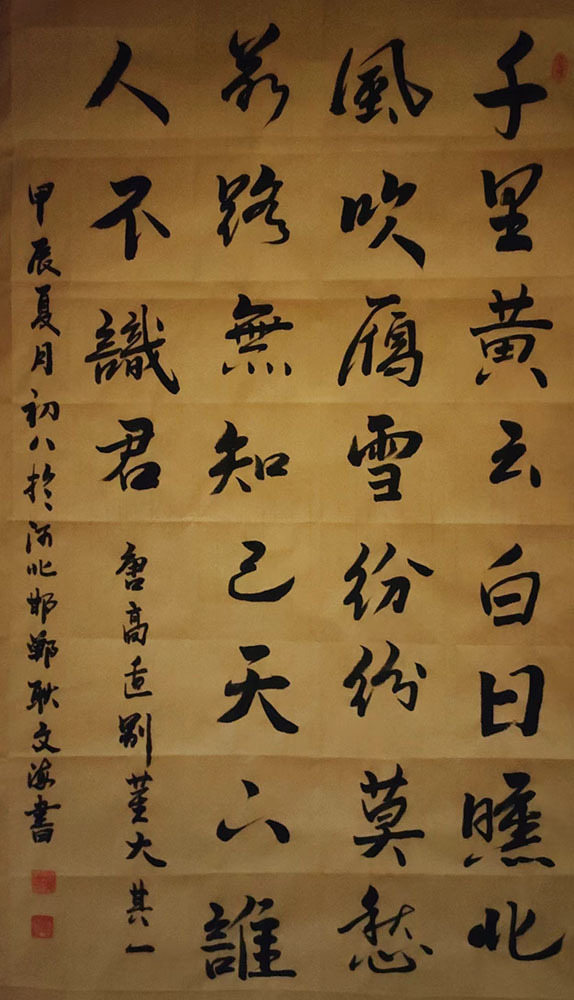 千里黄云白日曛北
風吹鴈雪紛紛莫愁
前路無知己天下誰
人不識君
唐高适别董大其一
甲辰夏月初八於河北邯鄲耿文海書